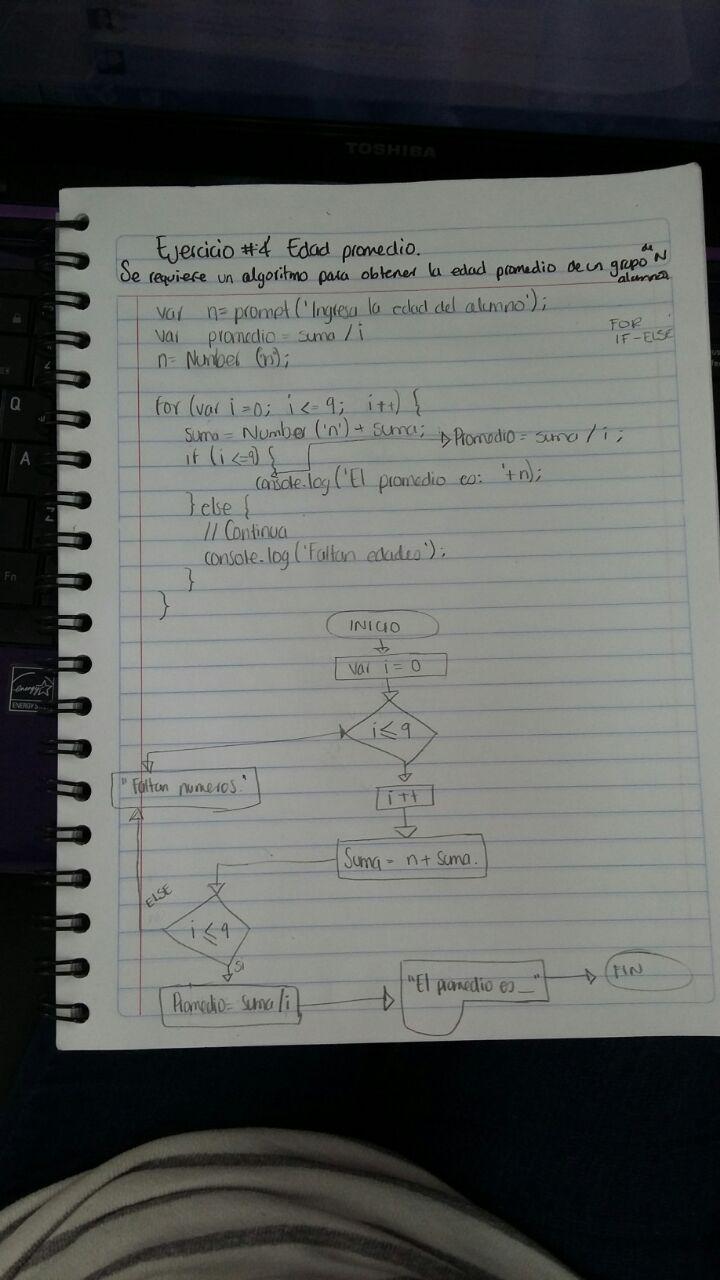 TOSHIBA
Ejercicio #4 Edad promedio.
Se requiere un algoritmo para obtener la edad promedio de un grupo de N
alumnos
var n= prompt ('Ingresa la edad del alumno');
var promedio = suma / i
FOR
IF-ELSE
n= Number (n);
for (var i=0; i <= 9; i++) {
suma = Number ('n') + suma;
Promedio = suma / i ;
if (i <=9) {
console.log ('El promedio es: '+n);
} else {
// Continua
console.log ('Faltan edades');
}
}
INICIO
var i = 0
i ≤ 9
"Faltan numeros."
i ++
Suma = n + suma.
ELSE
i ≤ 9
SI
Promedio = suma / i
"El promedio es _"
FIN
Q
A
Z
Fn
energy
ENERGY S